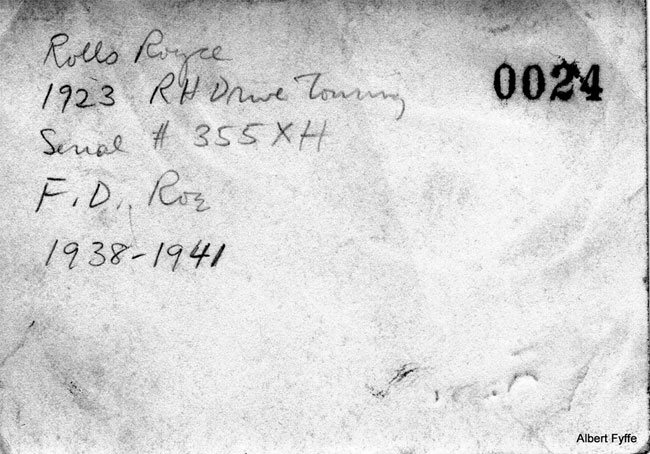 Rolls Royce
0024
1923 RH Drive Touring
Serial # 355XH
F.D. Roe
1938-1941
Albert Fyffe